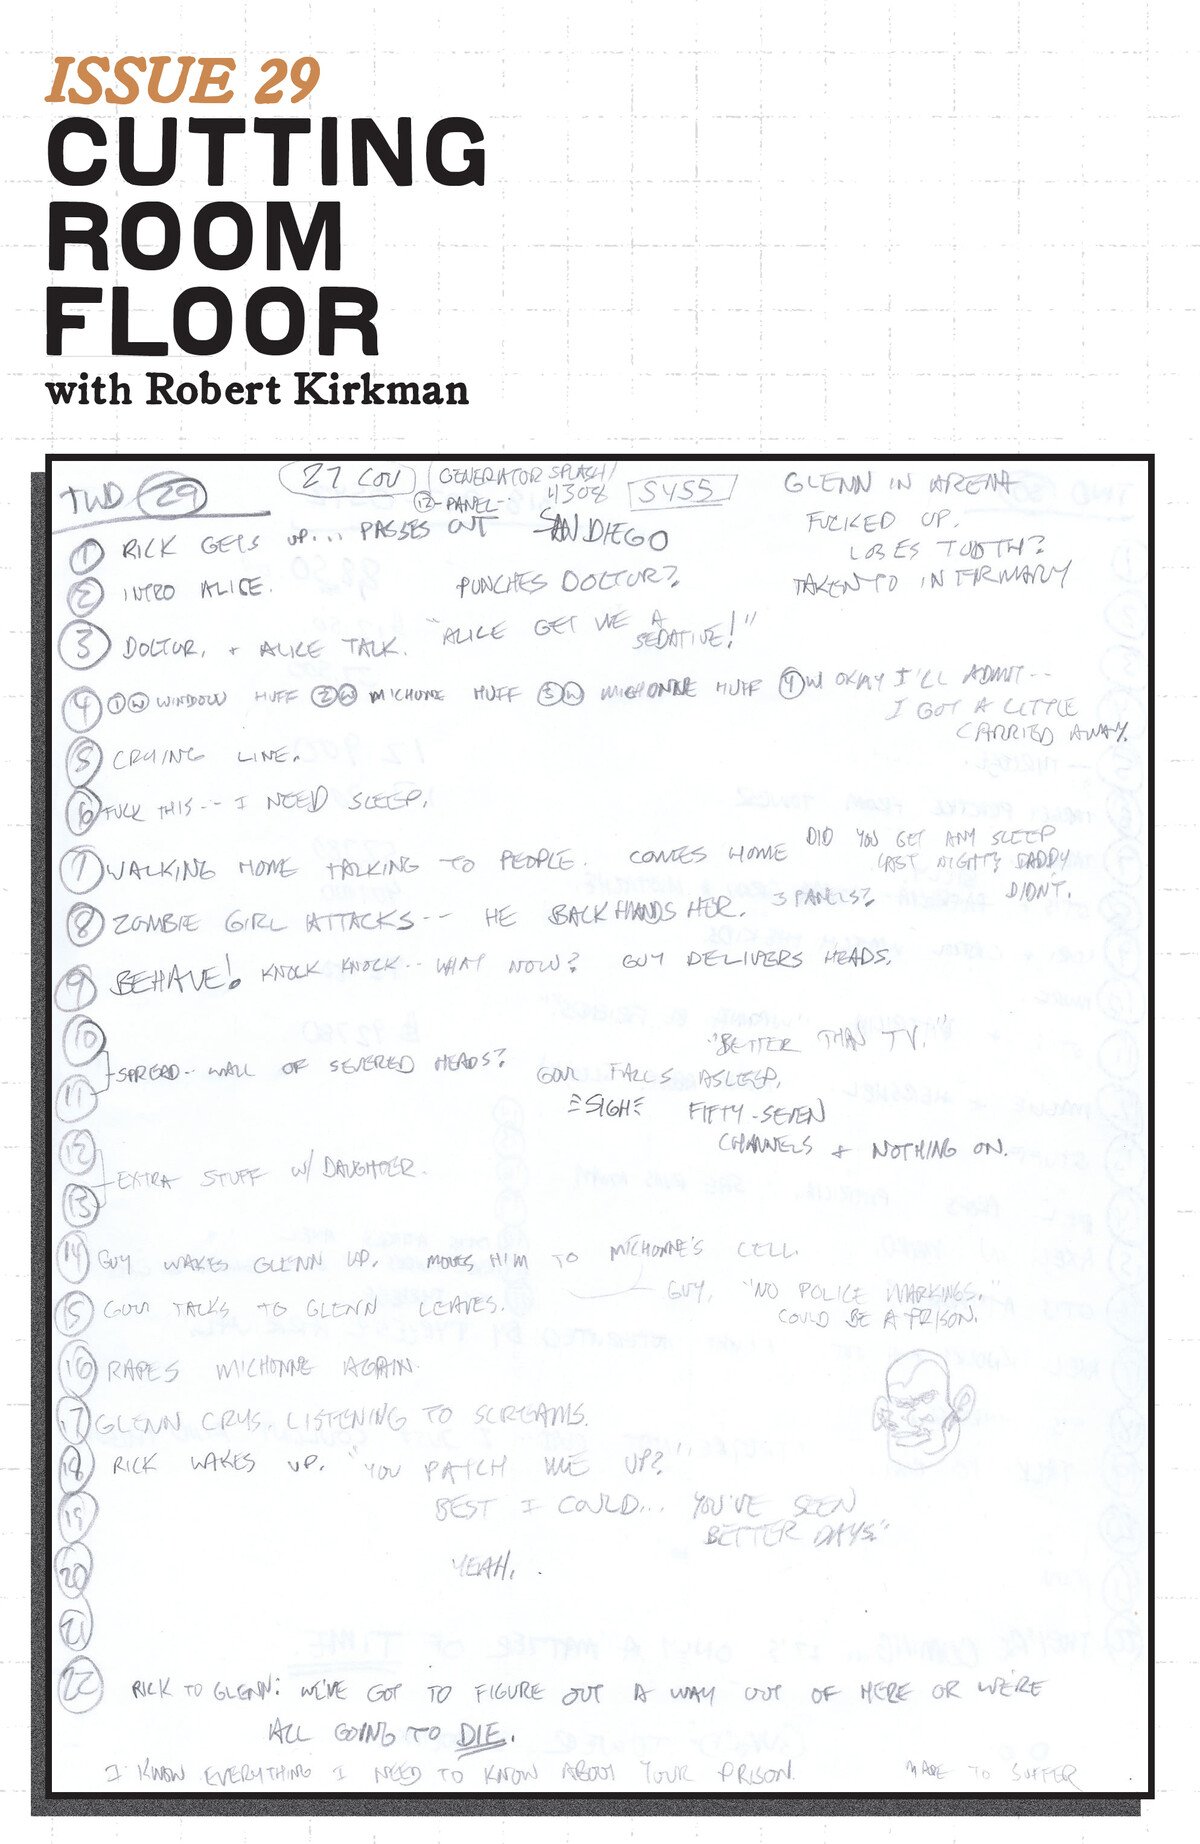 ISSUE 29
CUTTING
ROOM
FLOOR
with Robert Kirkman
TWD 29
27 COV
GENERATOR SPLASH/
4308
12-PANEL--
5455
SAN DIEGO
GLENN IN ARENA
FUCKED UP.
LOSES TOOTH?
TAKEN TO INFIRMARY
1 RICK GETS UP... PASSES OUT
2 INTRO ALICE. PUNCHES DOCTOR?
3 DOCTOR, + ALICE TALK. "ALICE GET ME A
SEDATIVE!"
4 1 W WINDOW HUFF 2 W MICHONNE HUFF 3 W MICHONNE HUFF 4 W OKAY I'LL ADMIT--
I GOT A LITTLE
CARRIED AWAY.
5 CRYING LINE.
6 FUCK THIS-- I NEED SLEEP.
7 WALKING HOME TALKING TO PEOPLE. COMES HOME DID YOU GET ANY SLEEP
LAST NIGHT? DADDY
DIDN'T.
8 ZOMBIE GIRL ATTACKS-- HE BACKHANDS HER. 3 PANELS?
9 BEHAVE! KNOCK KNOCK-- WHAT NOW? GUY DELIVERS HEADS.
10
11
SPREAD-- WALL OF SEVERED HEADS?
"BETTER THAN TV."
GOV FALLS ASLEEP.
SIGH FIFTY-SEVEN
CHANNELS + NOTHING ON.
12
13
EXTRA STUFF W/ DAUGHTER.
14 GUY WAKES GLENN UP. MOVES HIM TO MICHONNE'S CELL.
GUY, "NO POLICE MARKINGS."
COULD BE A PRISON.
15 GOV TALKS TO GLENN LEAVES.
16 RAPES MICHONNE AGAIN.
17 GLENN CRYS, LISTENING TO SCREAMS.
18 RICK WAKES UP. "YOU PATCH ME UP?"
19 BEST I COULD... YOU'VE SEEN
BETTER DAYS."
20 YEAH.
21
22 RICK TO GLENN: WE'VE GOT TO FIGURE OUT A WAY OUT OF HERE OR WE'RE
ALL GOING TO DIE.
I KNOW EVERYTHING I NEED TO KNOW ABOUT YOUR PRISON.
MADE TO SUFFER